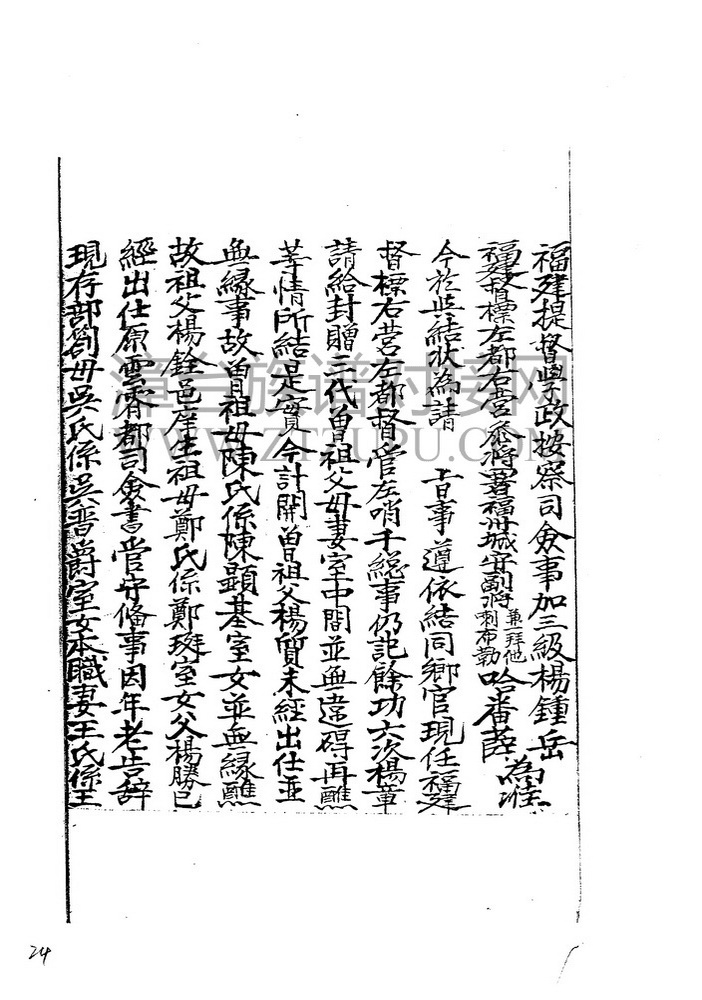 福建提督學政按察司僉事加三級楊鍾岳
福建督標左都右營叅將署福州城守副將兼一拜他喇布勒哈番薛 為准
今於與結狀為請 旨事遵依結同鄉官現任福建
督標右營左都督管左哨千總事仍記餘功六次楊章
請給封贈三代曾祖父母妻室中間並無違碍再醮
等情所結是實今計開曾祖父楊質未經出仕並
無緣事故曾祖母陳氏係陳顯基室女並無緣醮
故祖父楊銓邑庠生祖母鄭氏係鄭 室女父楊勝已
經出仕原雲霄都司僉書管守俻事因年老告辞
現存部劄母吳氏係吳晋爵室女本職妻王氏係王
漳台族谱对接网
WWW.ZTZUPU.COM
24